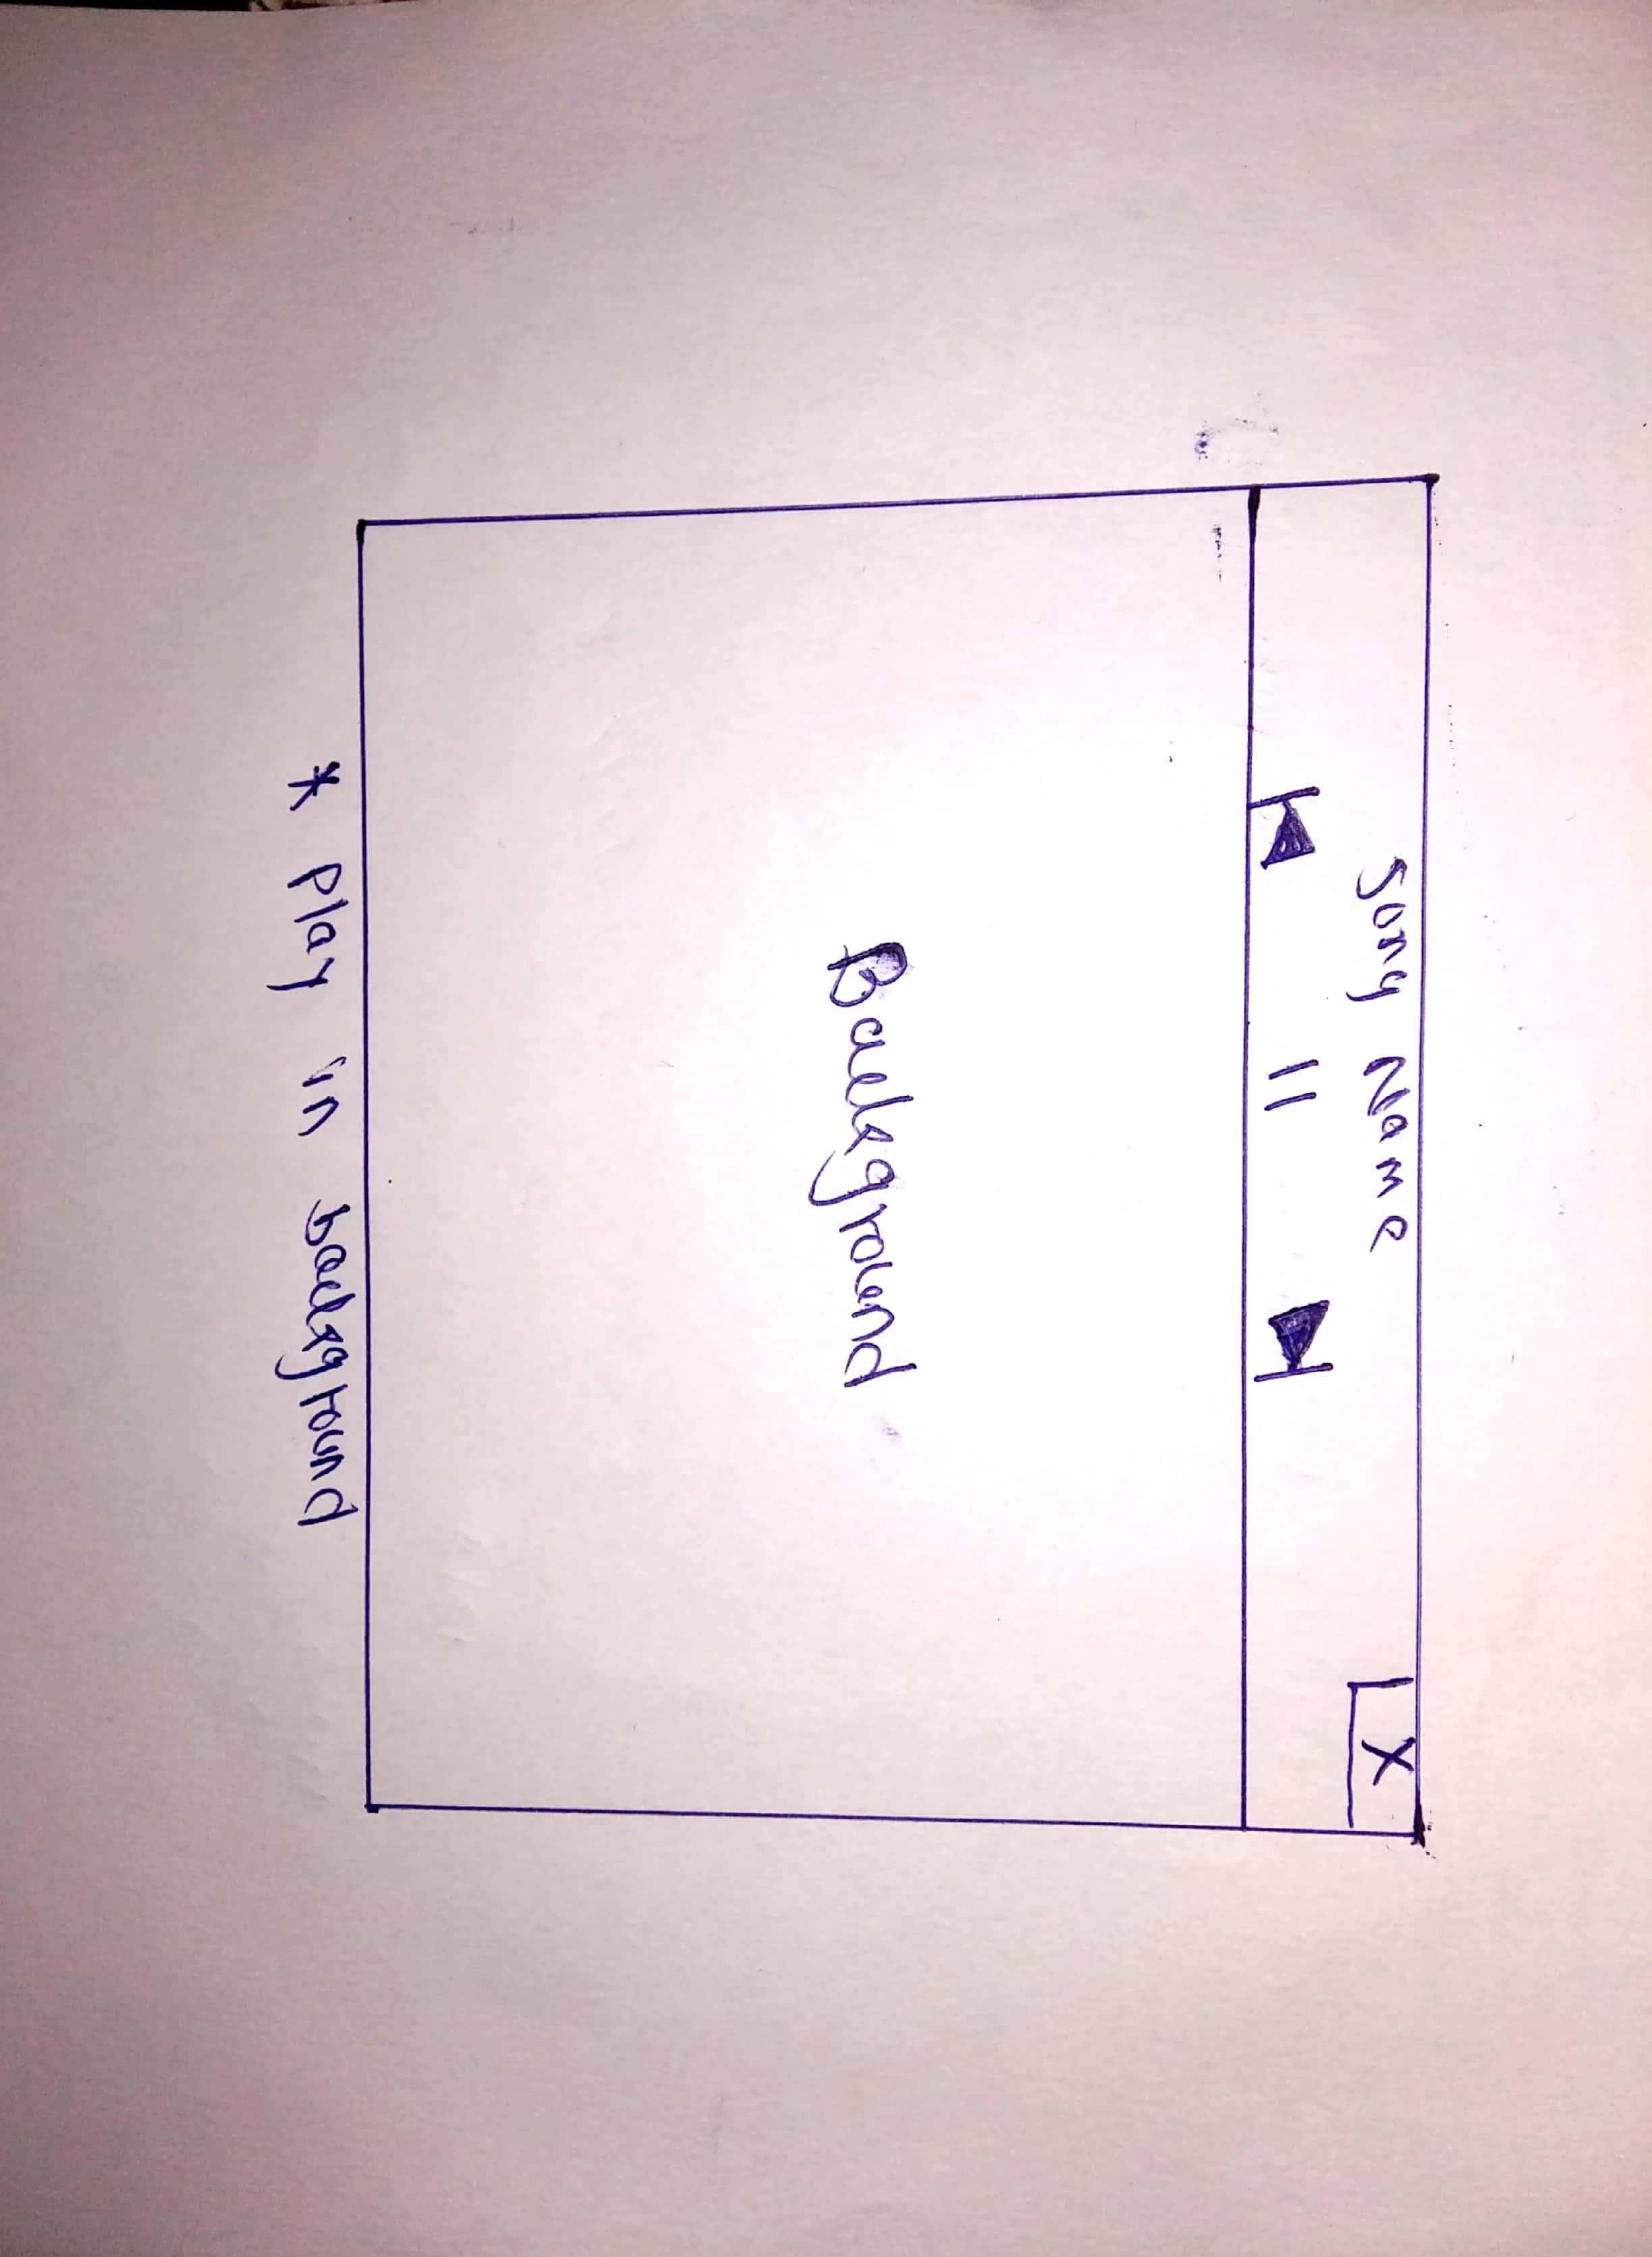 Song Name
X
Background
* Play in background